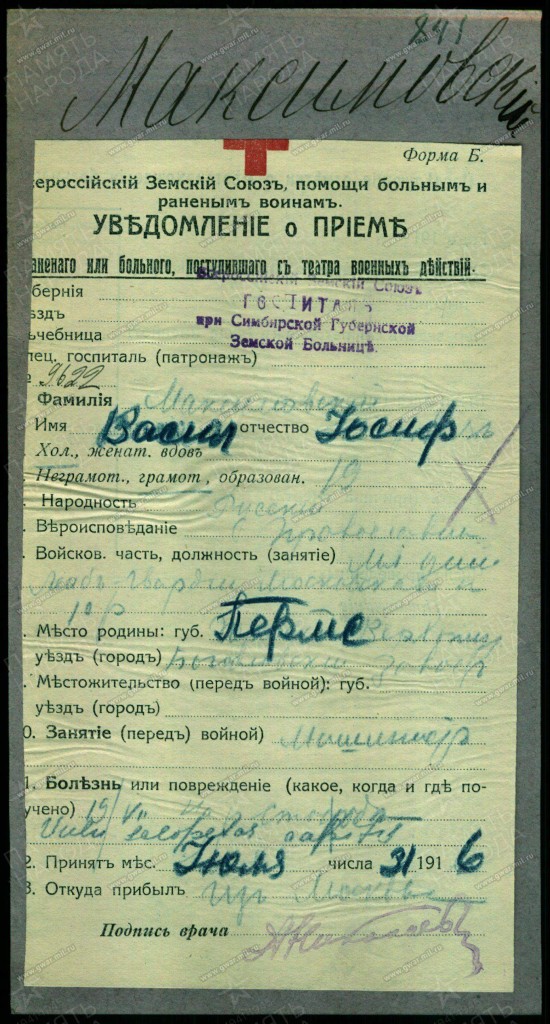 841
Максимовскій
Форма Б.
сероссійскій Земскій Союзъ, помощи больнымъ и
раненымъ воинамъ.
УВѢДОМЛЕНІЕ о ПРІЕМѢ
аненаго или больного, поступившаго съ театра военныхъ дѣйствій.
Всероссійскій Земскій Союзъ
ГОСПИТАЛЬ
при Симбирской Губернской
Земской Больницѣ.
убернія
ѣздъ
чебница
пец. госпиталь (патронажъ)
9622
Фамилія Максимовскій
Имя Васил отчество Іосиф
Хол., женат. вдовъ
Неграмот., грамот., образован.
Народность Русскій
Вѣроисповѣданіе Православн
Войсков. часть, должность (занятіе)
Лейб-Гвардіи Московскаго п
10 р
Мѣсто родины: губ. Пермс
уѣздъ (городъ)
Мѣстожительство (передъ войной): губ.
уѣздъ (городъ)
0. Занятіе (передъ) войной)
1. Болѣзнь или поврежденіе (какое, когда и гдѣ по-
учено) 19/VII
Vuln
2. Принятъ мѣс. Іюля числа 31 1916
3. Откуда прибылъ изъ Москвы
Подпись врача